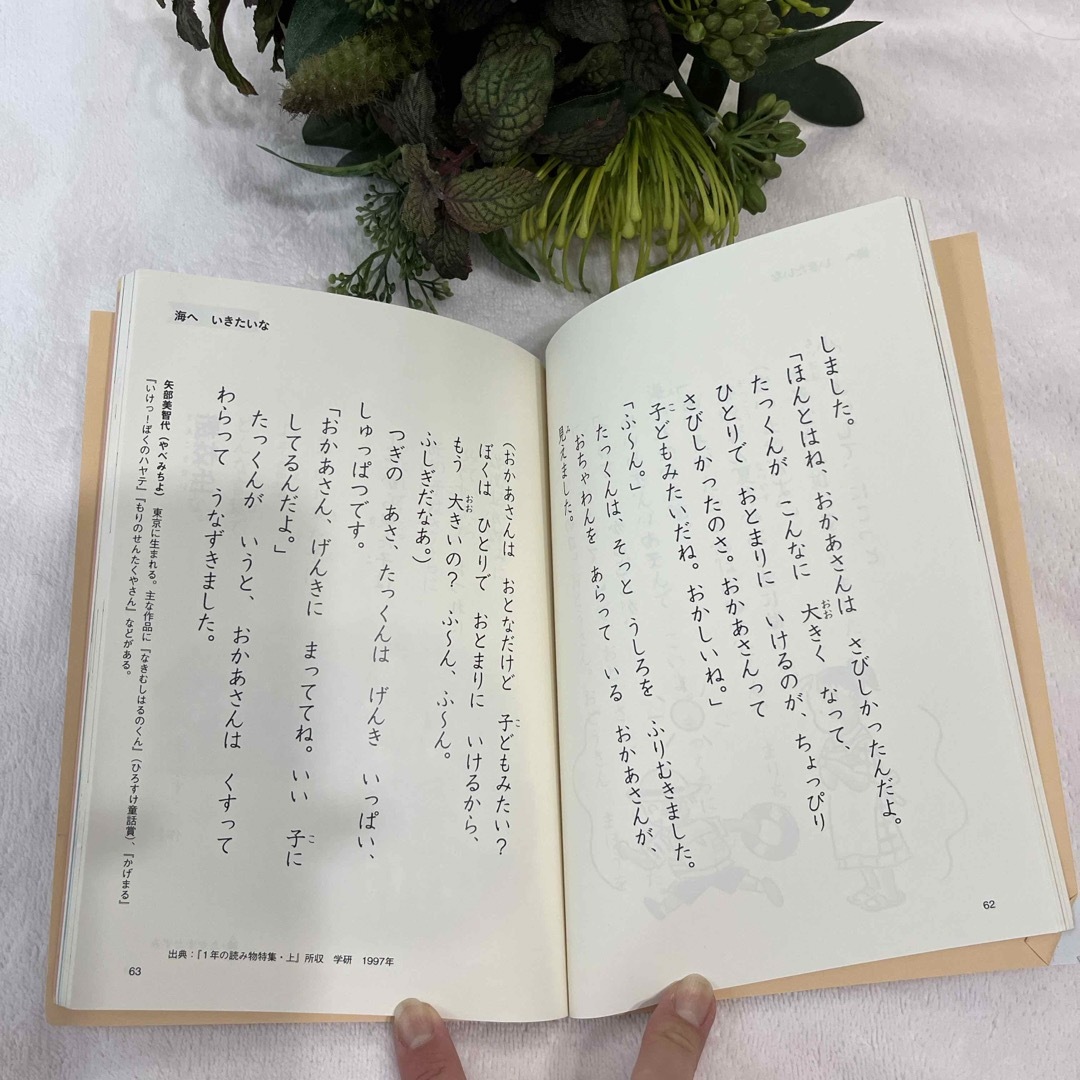 しました。
「ほんとはね、おかあさんは さびしかったんだよ。
たっくんが こんなに 大きく なって、
おお
ひとりで おとまりに いけるのが、ちょっぴり
さびしかったのさ。おかあさんって
子どもみたいだね。おかしいね。」
こ
「ふ〜ん。」
たっくんは、そっと うしろを ふりむきました。
おちゃわんを あらって いる おかあさんが、
見えました。
み
62
海へ いきたいな
(おかあさんは おとなだけど 子どもみたい?
こ
ぼくは ひとりで おとまりに いけるから、
もう 大きいの? ふ〜ん、ふ〜ん。
おお
ふしぎだなあ。)
つぎの あさ、たっくんは げんき いっぱい、
しゅっぱつです。
「おかあさん、げんきに まっててね。いい 子に
こ
してるんだよ。」
たっくんが いうと、おかあさんは くすって
わらって うなずきました。
矢部美智代(やべみちよ) 東京に生まれる。主な作品に『なきむしはるのくん』(ひろすけ童話賞)、『かげまる』
『いけっ!ぼくのハヤテ』『もりのせんたくやさん』などがある。
出典:『1年の読み物特集・上』所収 学研 1997年
63